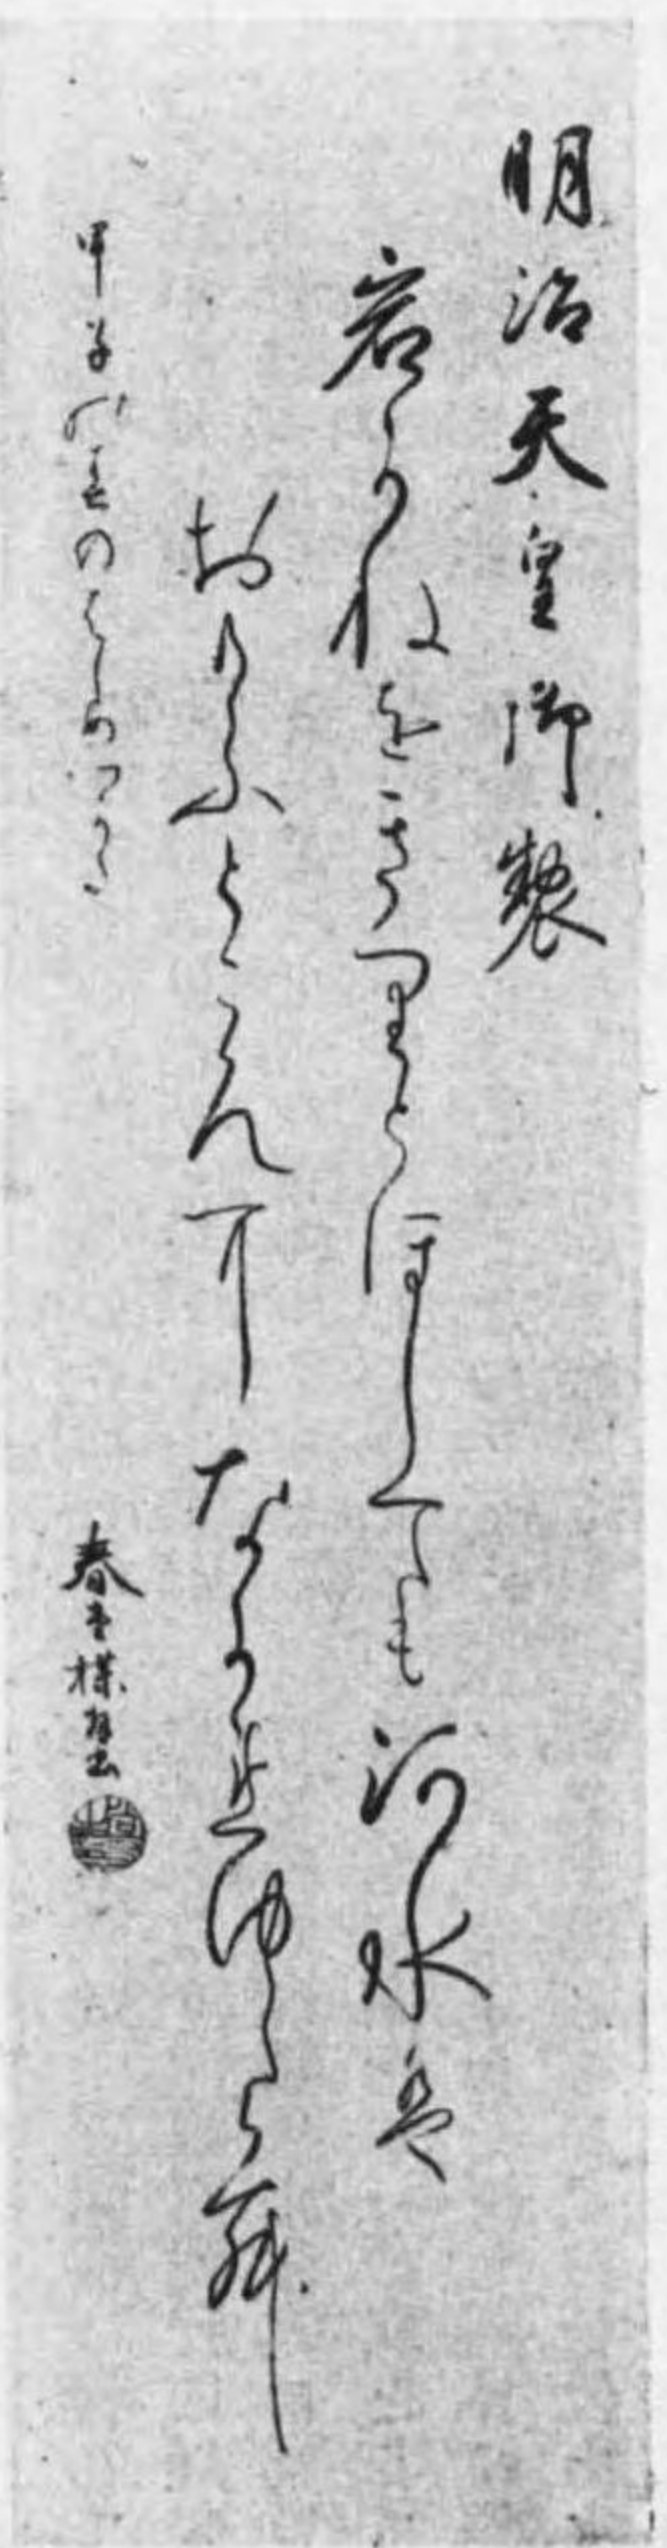 明治天皇御製
岩かねをきりとほしても河水は
おもふところに なかれゆくらむ
甲子の春のはしめつかた
春